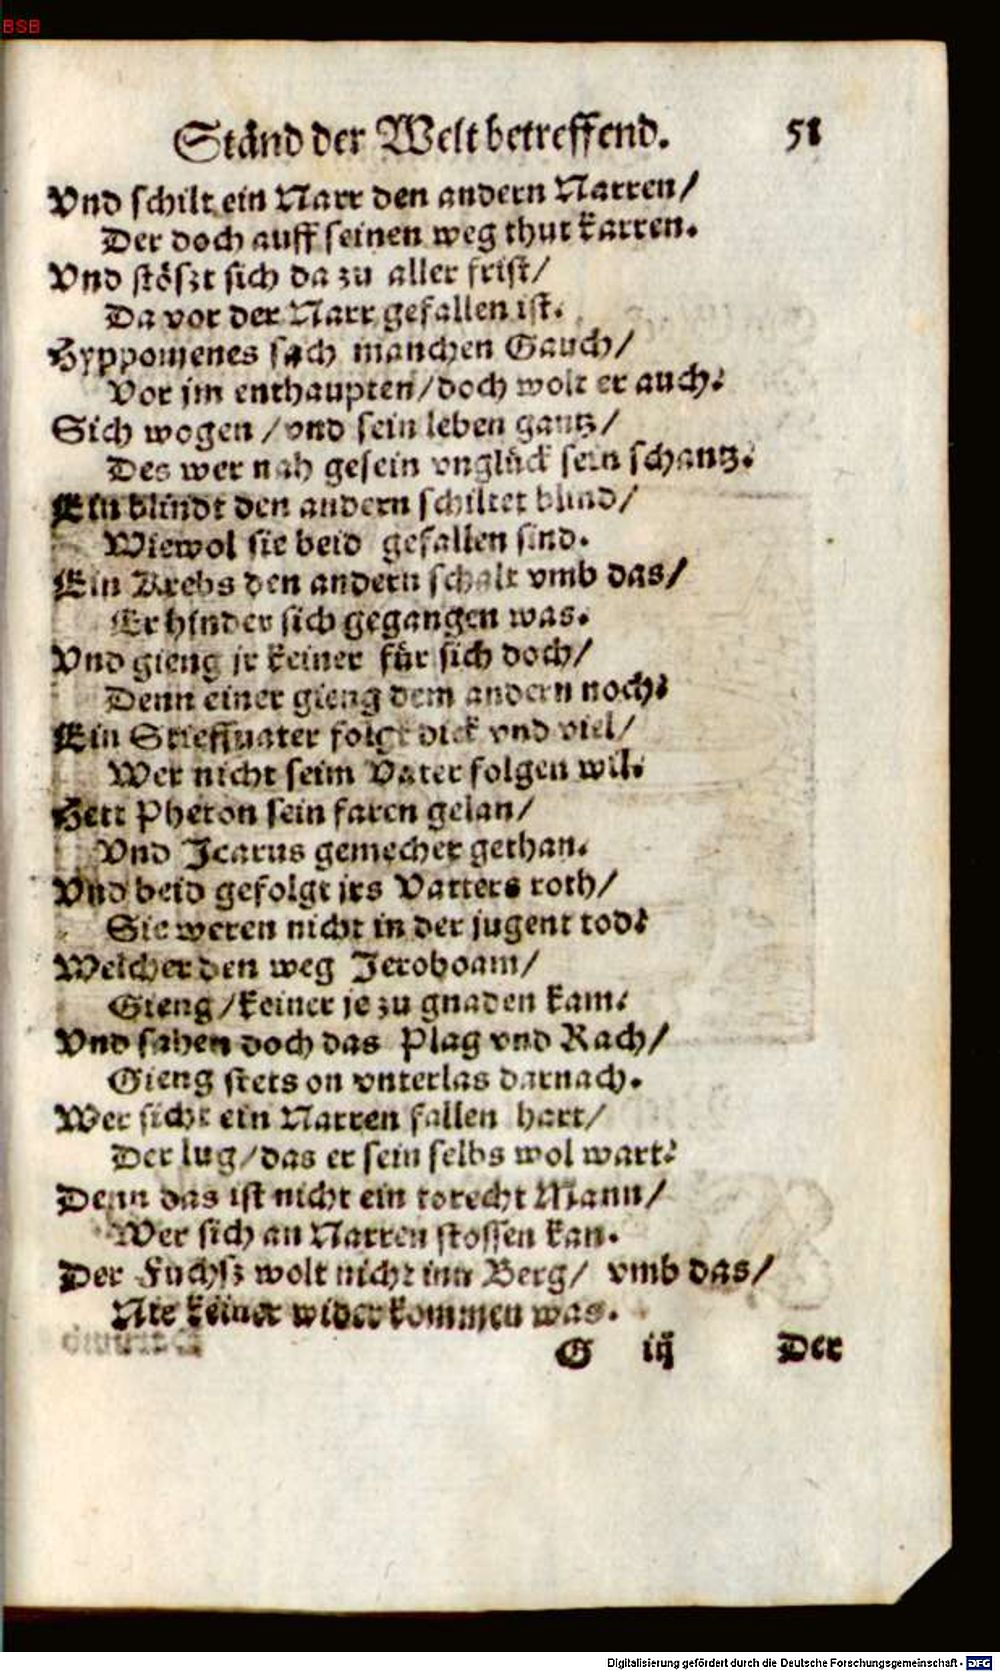 BSB
Ständ der Welt betreffend. 51
Vnd schilt ein Narr den andern Narren/
Der doch auff seinen weg thut karren.
Vnd stöszt sich da zu aller frist/
Da vor der Narr gefallen ist.
Hyppomenes sach manchen Gauch/
Vor jm enthaupten/doch wolt er auch.
Sich wogen /vnd sein leben gantz/
Des wer nah gesein vnglück sein schantz.
Ein blindt den andern schiltet blind/
Wiewol sie beid gefallen sind.
Ein Krebs den andern schalt vmb das/
Er hinder sich gegangen was.
Vnd gieng jr keiner für sich doch/
Denn einer gieng dem andern noch.
Ein Stieffuater folgt dick vnd viel/
Wer nicht seim Vater folgen wil.
Hett Pheton sein faren gelan/
Vnd Icarus gemechet gethan.
Vnd beid gefolgt jrs Vatters roth/
Sie weren nicht in der jugent tod.
Welcher den weg Jeroboam/
Gieng/keiner je zu gnaden kam.
Vnd sahen doch das Plag vnd Rach/
Gieng stets on vnterlas darnach.
Wer sicht ein Narren fallen hart/
Der lug/das er sein selbs wol wart.
Denn das ist nicht ein torecht Mann/
Wer sich an Narren stossen kan.
Der Fuchsz wolt nicht inn Berg/ vmb das/
Nie keiner widerkommen was.
G iij Der
Digitalisierung gefördert durch die Deutsche Forschungsgemeinschaft - DFG